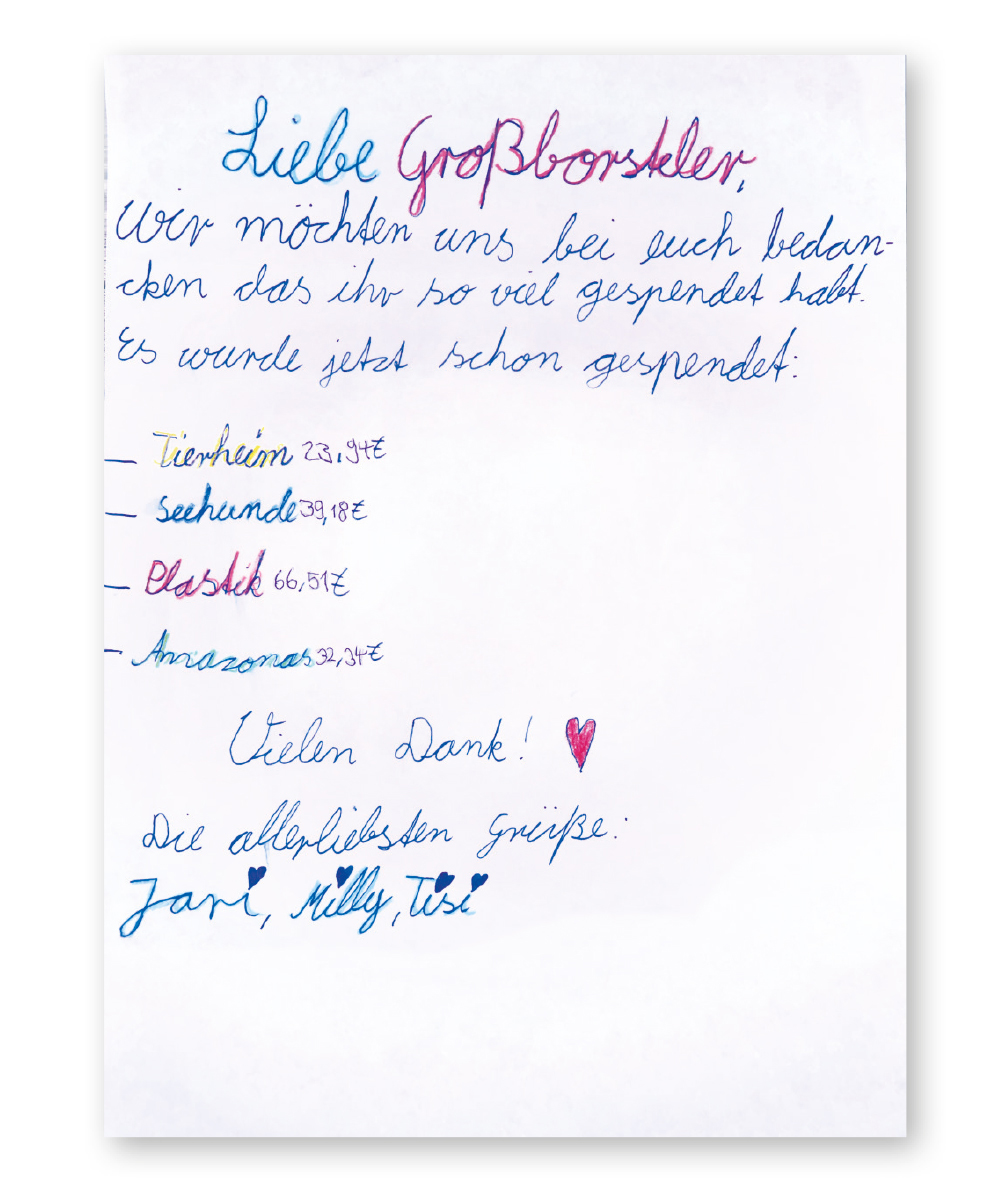 Liebe Großborstler,
Wir möchten uns bei euch bedan-
cken das ihr so viel gespendet habt.
Es wurde jetzt schon gespendet:
– Tierheim 23,94€
– Seehunde 39,18€
– Plastik 66,51€
– Amazonas 32,34€
Vielen Dank!
Die allerliebsten Grüße:
Jari, Milly, Tisi